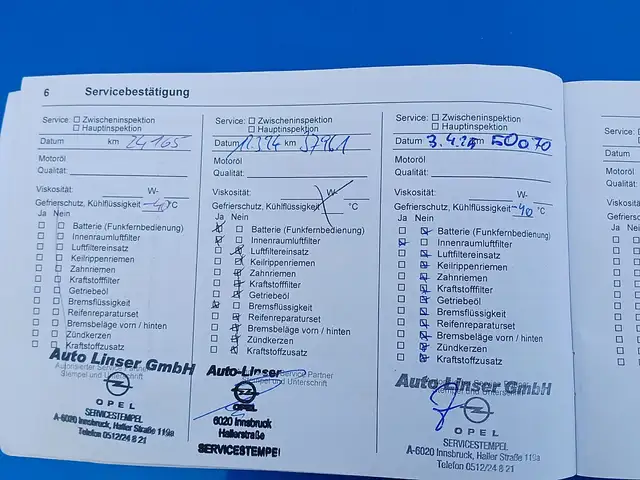 6 Servicebestätigung
Service: ☐ Zwischeninspektion
☐ Hauptinspektion
Datum km 24165
Motoröl
Qualität:
Viskosität: W-
Gefrierschutz, Kühlflüssigkeit -40 °C
Ja Nein
☐ ☐ Batterie (Funkfernbedienung)
☐ ☐ Innenraumluftfilter
☐ ☐ Luftfiltereinsatz
☐ ☐ Keilrippenriemen
☐ ☐ Zahnriemen
☐ ☐ Kraftstofffilter
☐ ☐ Getriebeöl
☐ ☐ Bremsflüssigkeit
☐ ☐ Reifenreparaturset
☐ ☐ Bremsbeläge vorn / hinten
☐ ☐ Zündkerzen
☐ ☐ Kraftstoffzusatz
Auto Linser GmbH
Autorisierter Service Partner
Stempel und Unterschrift
OPEL
SERVICESTEMPEL
A-6020 Innsbruck, Haller Straße 119a
Telefon 0512/24 8 21
Service: ☐ Zwischeninspektion
☐ Hauptinspektion
Datum km 37961
Motoröl
Qualität:
Viskosität: W-
Gefrierschutz, Kühlflüssigkeit °C
Ja Nein
Batterie (Funkfernbedienung)
Innenraumluftfilter
Luftfiltereinsatz
Keilrippenriemen
Zahnriemen
Kraftstofffilter
Getriebeöl
Bremsflüssigkeit
Reifenreparaturset
Bremsbeläge vorn / hinten
Zündkerzen
Kraftstoffzusatz
Auto-Linser
Service Partner
Stempel und Unterschrift
OPEL
6020 Innsbruck
Hallerstraße
SERVICESTEMPEL
Service: ☐ Zwischeninspektion
☐ Hauptinspektion
Datum 3.4.25 km 50070
Motoröl
Qualität:
Viskosität: W-
Gefrierschutz, Kühlflüssigkeit -40 °C
Ja Nein
Batterie (Funkfernbedienung)
Innenraumluftfilter
Luftfiltereinsatz
Keilrippenriemen
Zahnriemen
Kraftstofffilter
Getriebeöl
Bremsflüssigkeit
Reifenreparaturset
Bremsbeläge vorn / hinten
Zündkerzen
Kraftstoffzusatz
Auto Linser GmbH
OPEL
SERVICESTEMPEL
A-6020 Innsbruck, Haller Straße 119a
Telefon 0512/24 8 21
Service:
Datum
Motoröl
Qualität:
Ja